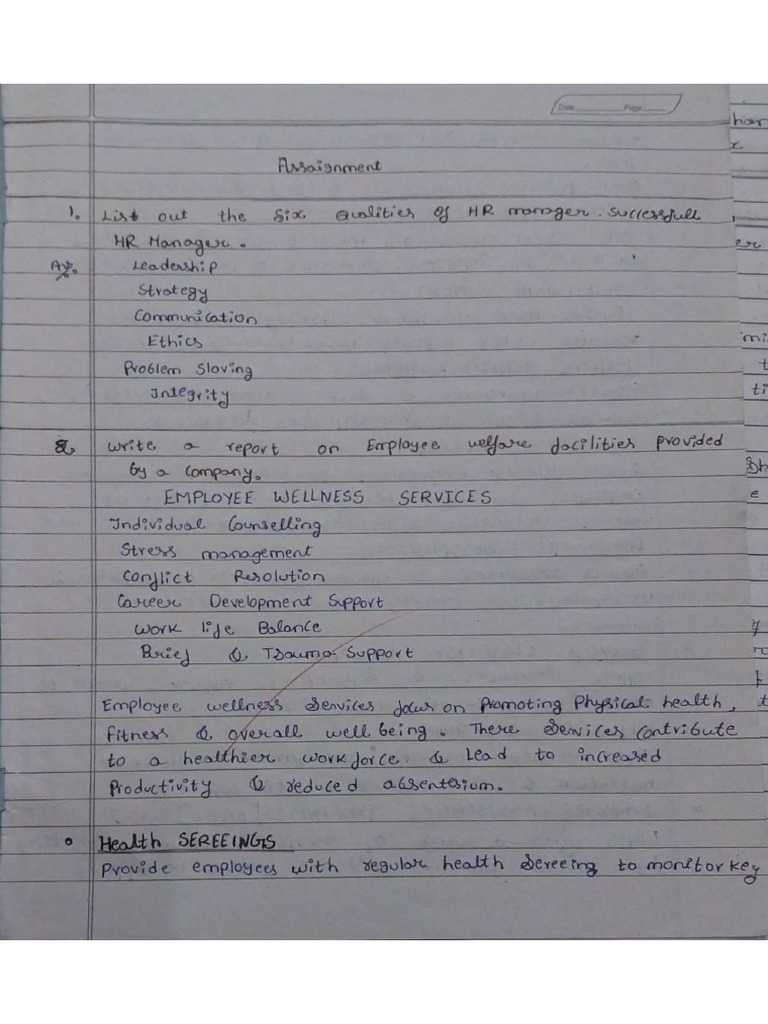 Date Page
Assaignment
1. List out the six Qualities of HR manager. successfull
HR Manager.
Leadership
Strategy
Communication
Ethics
Problem Sloving
Integrity
2. write a report on Employee welfare facilities provided
by a company.
EMPLOYEE WELLNESS SERVICES
Individual Counselling
Stress management
Conflict Resolution
Career Development Support
Work life Balance
Brief & Trauma Support
Employee wellness services focus on Promoting Physical health,
fitness & overall well being. There services contribute
to a healthier workforce & Lead to increased
Productivity & reduced absentesium.
Health SEREEINGS
Provide employees with regular health sereeing to monitor key